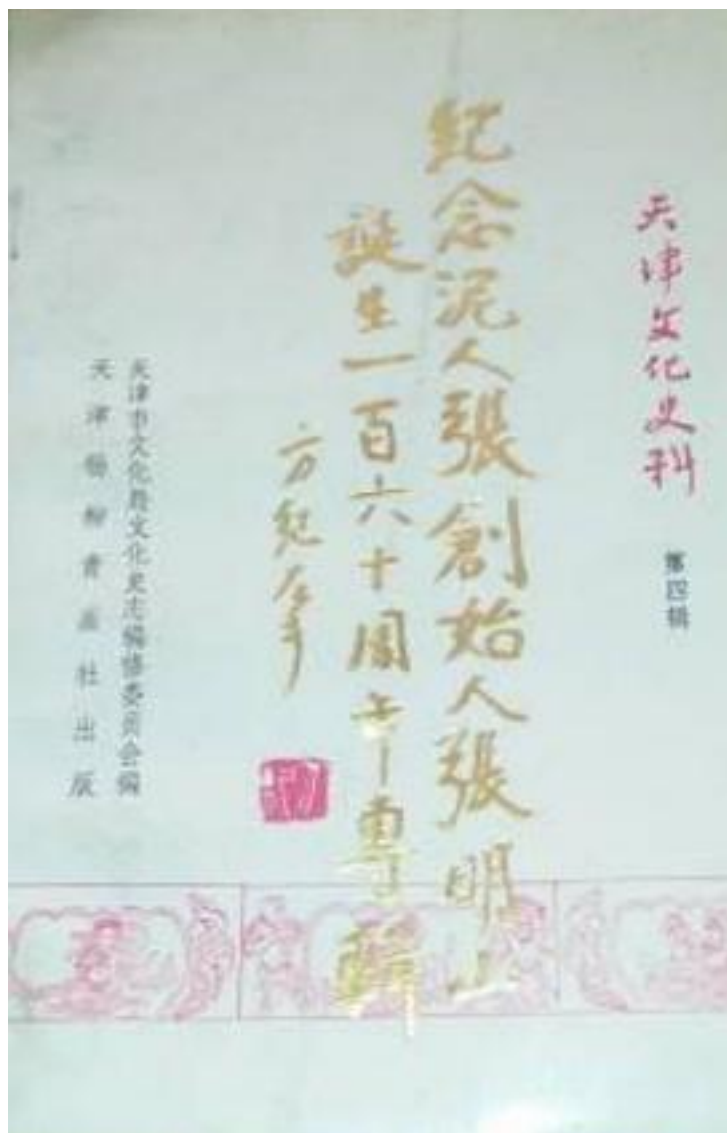 天津文化史料
第四辑
紀念泥人張創始人張明山
誕生一百六十周年專輯
方紀
天津市文化局文化史志编修委员会编
天津杨柳青画社出版